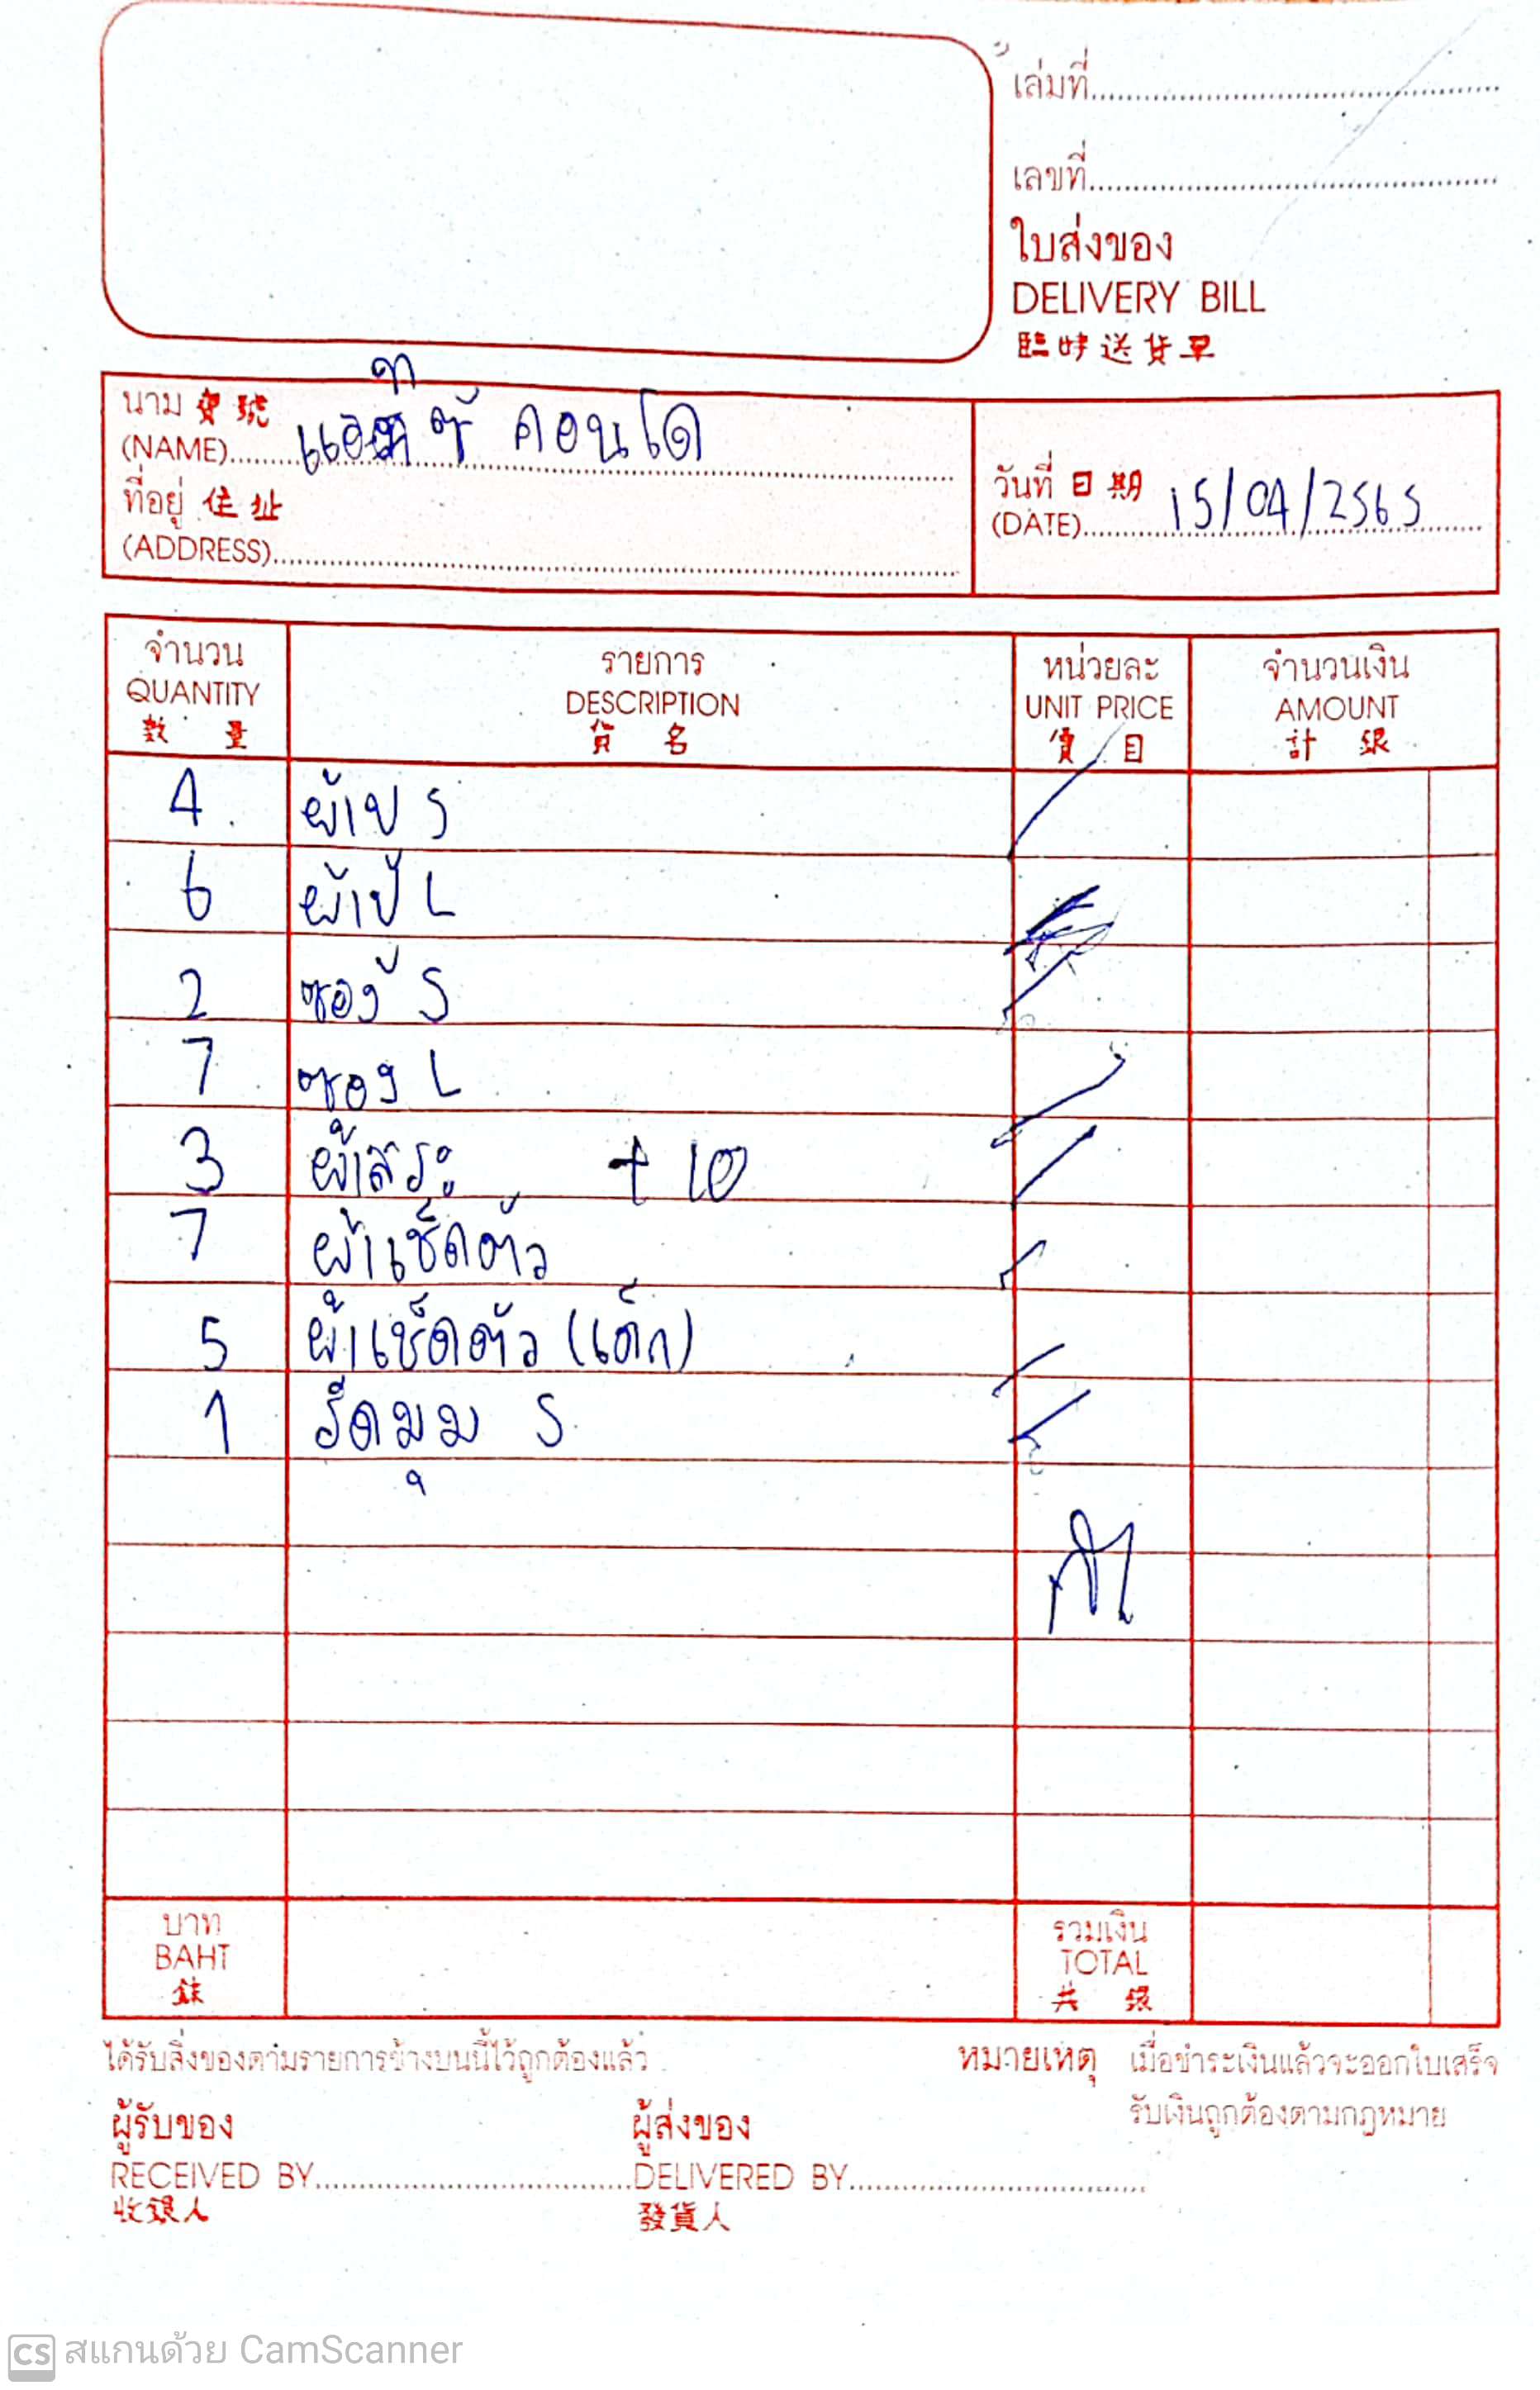 เล่มที่
เลขที่
ใบส่งของ
DELIVERY BILL
臨時送货單
นาม 寶號
(NAME) คอนโด
ที่อยู่ 住址
(ADDRESS)
วันที่ 日期
(DATE) 15/04/2565
จำนวน รายการ หน่วยละ จำนวนเงิน
QUANTITY DESCRIPTION UNIT PRICE AMOUNT
數量 貨名 價目 計銀
4 S
6 L
2 ซอง S
7 ซอง L
3 ผ้าสระ + 10
7 ผ้าเช็ดตัว
5 ผ้าเช็ดตัว (เด็ก)
1 รัดมุม S
บาท รวมเงิน
BAHT TOTAL
銖 共銀
ได้รับสิ่งของตามรายการข้างบนนี้ไว้ถูกต้องแล้ว หมายเหตุ เมื่อชำระเงินแล้วจะออกใบเสร็จ
รับเงินถูกต้องตามกฎหมาย
ผู้รับของ ผู้ส่งของ
RECEIVED BY DELIVERED BY
收銀人 發貨人
CS สแกนด้วย CamScanner